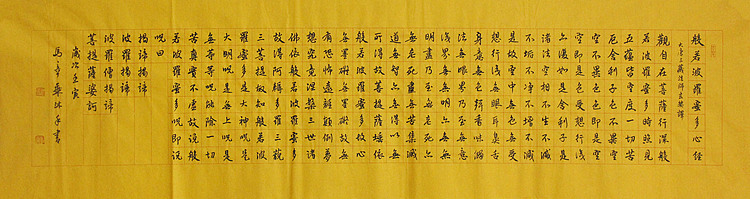 般若波羅蜜多心經
大唐三藏法師玄奘譯
觀自在菩薩行深般
若波羅蜜多時照見
五蘊皆空度一切苦
厄舍利子色不異空
空不異色色即是空
空即是色受想行識
亦復如是舍利子是
諸法空相不生不滅
不垢不淨不增不減
是故空中無色無受
想行識無眼耳鼻舌
身意無色聲香味觸
法無眼界乃至無意
識界無無明亦無無
明盡乃至無老死亦
無老死盡無苦集滅
道無智亦無得以無
所得故菩提薩埵依
般若波羅蜜多故心
無罣礙無罣礙故無
有恐怖遠離顛倒夢
想究竟涅槃三世諸
佛依般若波羅蜜多
故得阿耨多羅三藐
三菩提故知般若波
羅蜜多是大神咒是
大明咒是無上咒是
無等等咒能除一切
苦真實不虛故說般
若波羅蜜多咒即說
咒曰
揭諦揭諦
波羅揭諦
波羅僧揭諦
菩提薩婆訶
歲次壬寅
書